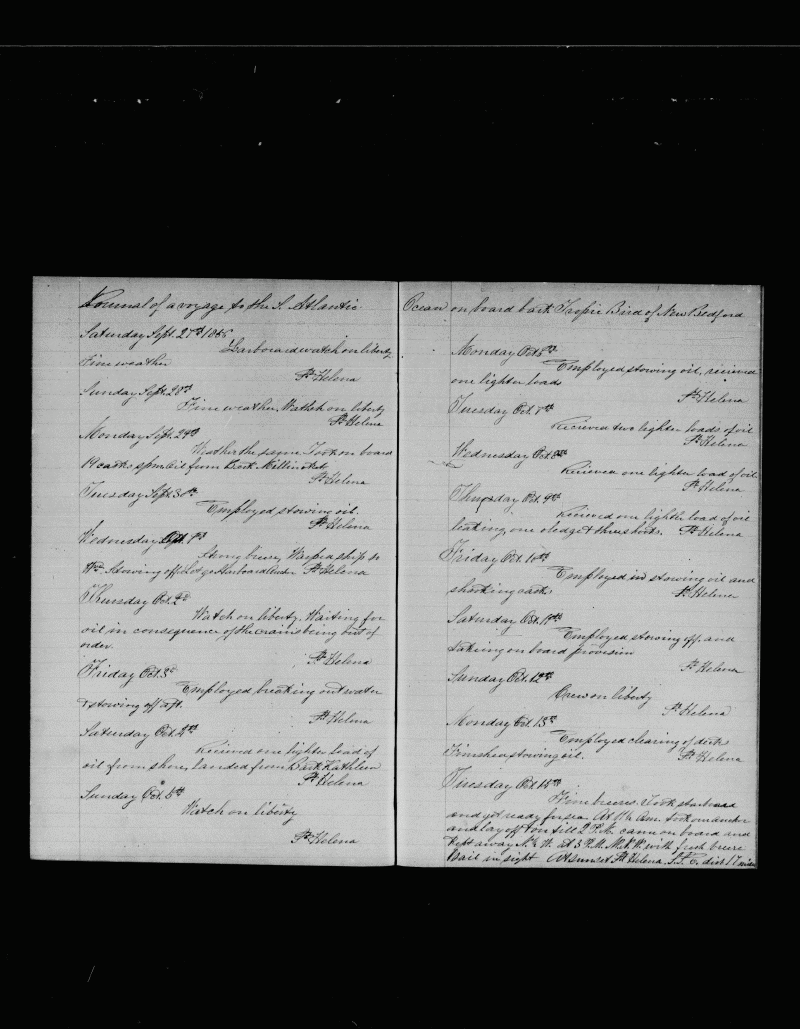 Journal of a voyage to the S. Atlantic
Saturday Sept. 27th
Larboard watch on liberty
Fine weather
St. Helena
Sunday Sept. 28th
Fine weather, Watch on liberty
St. Helena
Monday Sept. 29th
Weather the same Took on board
casks sperm oil from Bark
St. Helena
Tuesday Sept 30th
Employed stowing oil.
St. Helena
Wednesday Oct. 1st
Strong breeze,
Stowing off St. Helena
Thursday Oct. 2d
Watch on liberty. Waiting for
oil in consequence of the crains being out of
order.
St. Helena
Friday Oct. 3d
Employed breaking out water
& stowing off aft.
St. Helena
Saturday Oct. 4th
Recieved one lighter load of
oil from shore, landed from Bark Kathleen
St. Helena
Sunday Oct. 5th
Watch on liberty
St. Helena
Ocean on board bark Bird of New Bedford
Monday Oct.
Employed stowing oil, recieved
one lighter load
St. Helena
Tuesday Oct. 7th
Recieved two lighter loads of oil
St. Helena
Wednesday Oct. 8th
Recieved one lighter load of oil
St. Helena
Thursday Oct. 9th
Recieved one lighter load of oil
St. Helena
Friday Oct. 10th
Employed in stowing oil and
casks
St. Helena
Saturday Oct. 11th
Employed stowing off, and
taking on board provision
St. Helena
Sunday Oct. 12th
Crew on liberty
St. Helena
Monday Oct. 13th
Employed clearing of deck
Finished stowing oil.
St. Helena
Tuesday Oct. 14th
Fine breeses. Took
and got ready for sea. At Am. took our anchor
and lay off & on till 2 P.M. came on board and
kept away N. & W. at 3 P.M. with fresh breeze
Sail in sight At sunset St Helena S.S.E. dist 17 miles